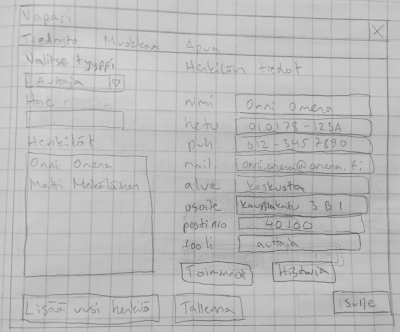 Vapari
X
Tiedosto Muokkaa Apua
Valitse tyyppi
Auttaja
Hae
Henkilöt
Onni Omena
Matti Meikäläinen
Lisää uusi henkilö
Henkilön tiedot
nimi Onni Omena
hetu 010178-123A
puh 012-3457890
mail onni.omena@omena.fi
alue keskusta
osoite kauppakatu 3 B 1
postinro 40100
rooli auttaja
Toiminnot Historia
Tallenna
Sulje